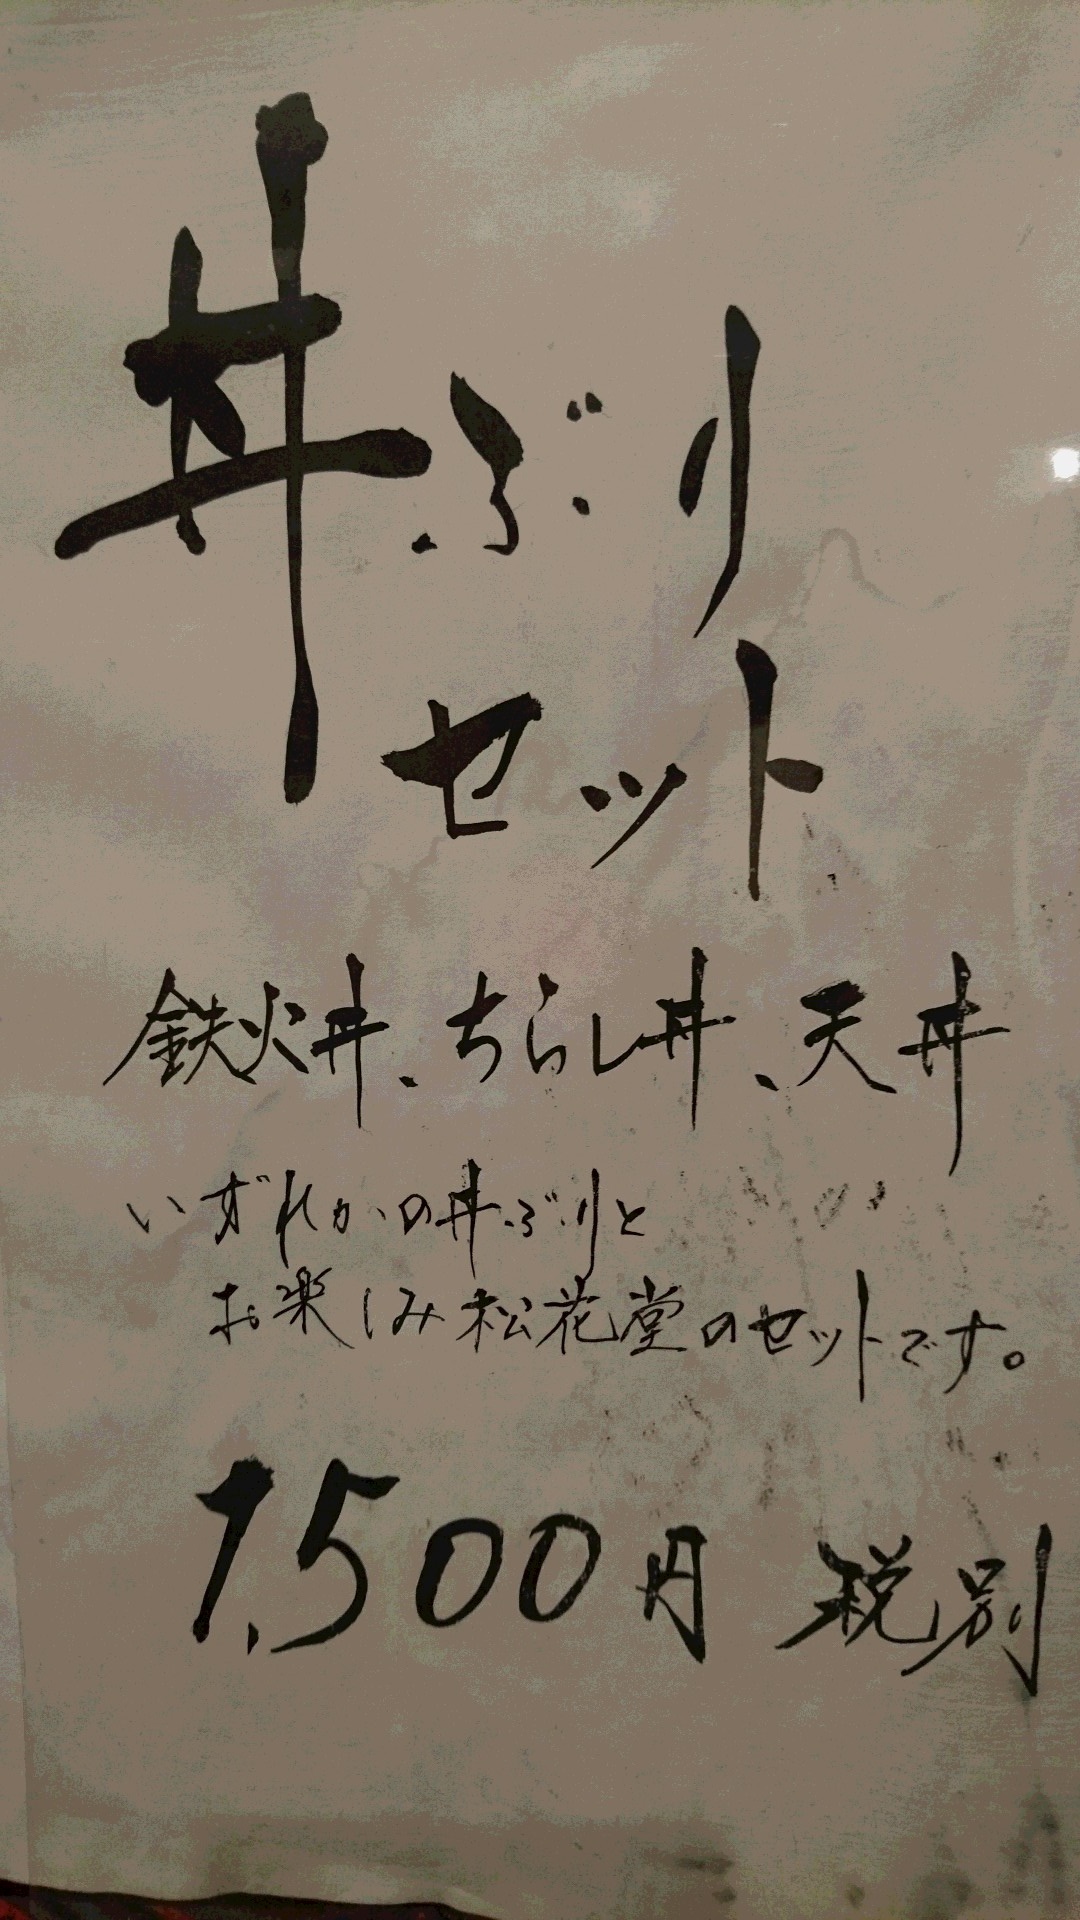 丼ぶり
セット
鉄火丼、ちらし丼、天丼
いずれかの丼ぶりと
お楽しみ松花堂のセットです。
1,500円 税別